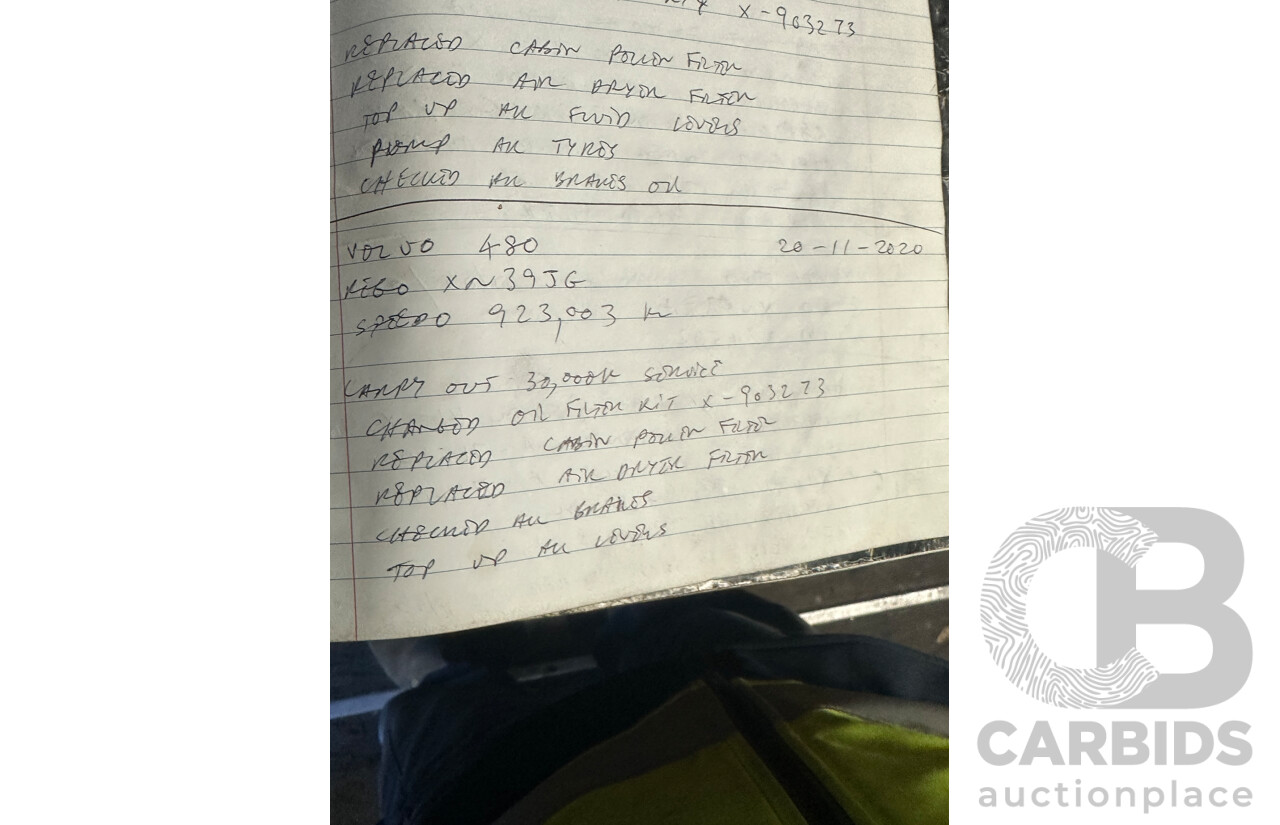 X-903273
REPLACED CABIN POLLEN FILTER
REPLACED AIR DRYER FILTER
TOP UP ALL FLUID LEVELS
PUMP ALL TYRES
CHECKED ALL BRAKES OIL
VOLVO 480 20-11-2020
REGO XN39JG
SPEEDO 923,003 K
CARRY OUT 30,000K SERVICE
CHANGED OIL FILTER KIT X-903273
REPLACED CABIN POLLEN FILTER
REPLACED AIR DRYER FILTER
CHECKED ALL BRAKES
TOP UP ALL LEVELS
CB
CARBIDS
auctionplace